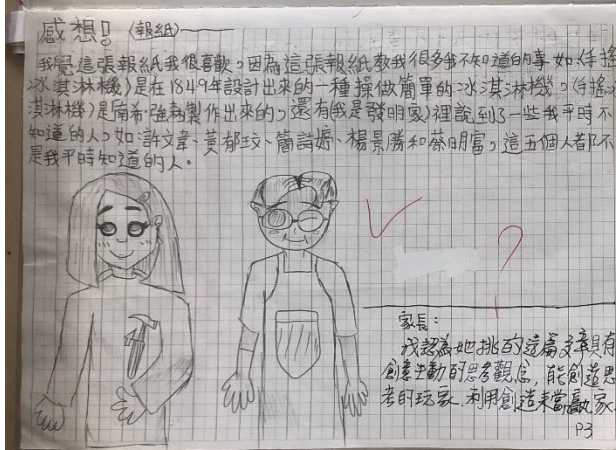 感想!! (報紙)
我覺這張報紙我很喜歡。因為這張報紙教我很多我不知道的事如(手搖
冰淇淋機)是在1849年設計出來的一種操做簡單的冰淇淋機。(手搖冰
淇淋機)是南希·強熱製作出來的。還有(我是發明家)裡說到了一些我平時不
知道的人。如:許文章、黃郁玟、簡詩婷、楊景勝和蔡明富。這五個人都不
是我平時知道的人。
?
家長:
我認為她挑的這篇文章具有
創意生動的思考觀念,能創造思
考的玩家.利用創造來當贏家
P3